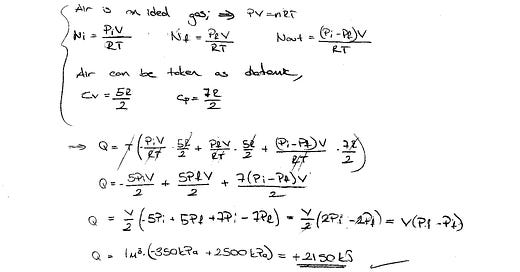 Air is an ideal gas; ⇒ PV=nRT
Ni = PiV/RT Nf = PfV/RT Nout = (Pi-Pf)V/RT
Air can be taken as diatomic,
Cv = 5R/2 Cp = 7R/2
⇒ Q = T(-PiV/RT · 5R/2 + PfV/RT · 5R/2 + (Pi-Pf)V/RT · 7R/2)
Q = -5PiV/2 + 5PfV/2 + 7(Pi-Pf)V/2
Q = V/2 (-5Pi + 5Pf + 7Pi - 7Pf) = V/2 (2Pi - 2Pf) = V(Pi - Pf)
Q = 1m³.(-350kPa + 2500kPa) = +2150kJ